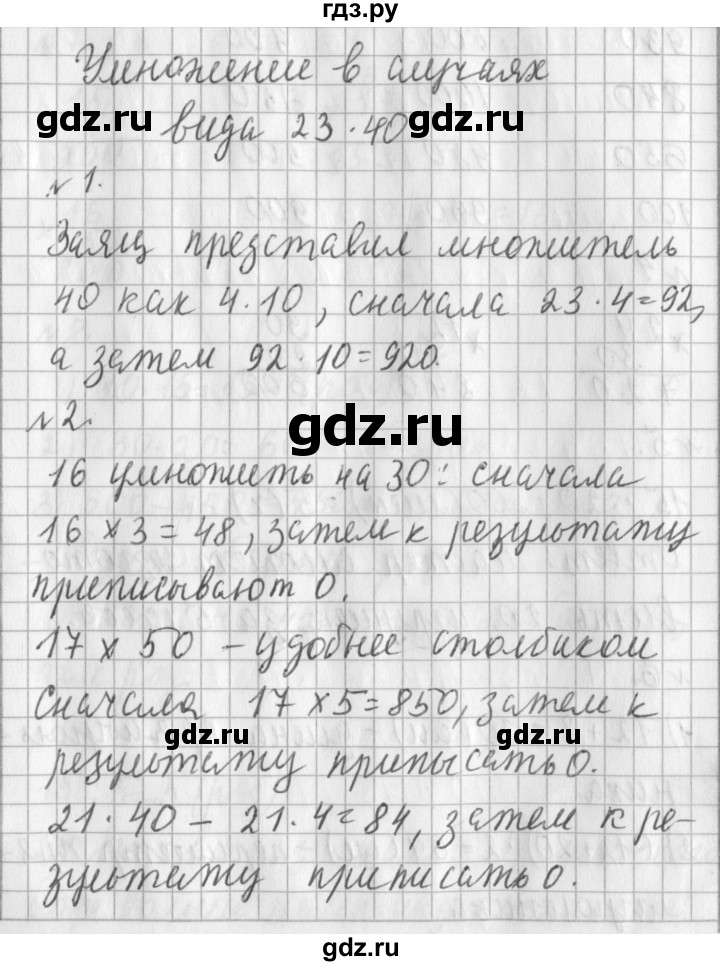 гдз.ру
Умножение в случаях
gdz.ru
вида 23·40
gdz.ru
№ 1.
Заяц представил множитель
40 как 4·10, сначала 23·4=92,
а затем 92·10=920.
gdz.ru
№ 2.
16 умножить на 30: сначала
16 × 3 = 48, затем к результату
приписывают 0.
17 × 50 – удобнее столбиком
Сначала 17 × 5 = 850, затем к
gdz.ru
gdz.ru
результату приписать 0.
21·40 – 21·4=84, затем к ре-
зультату приписать 0.
gdz.ru